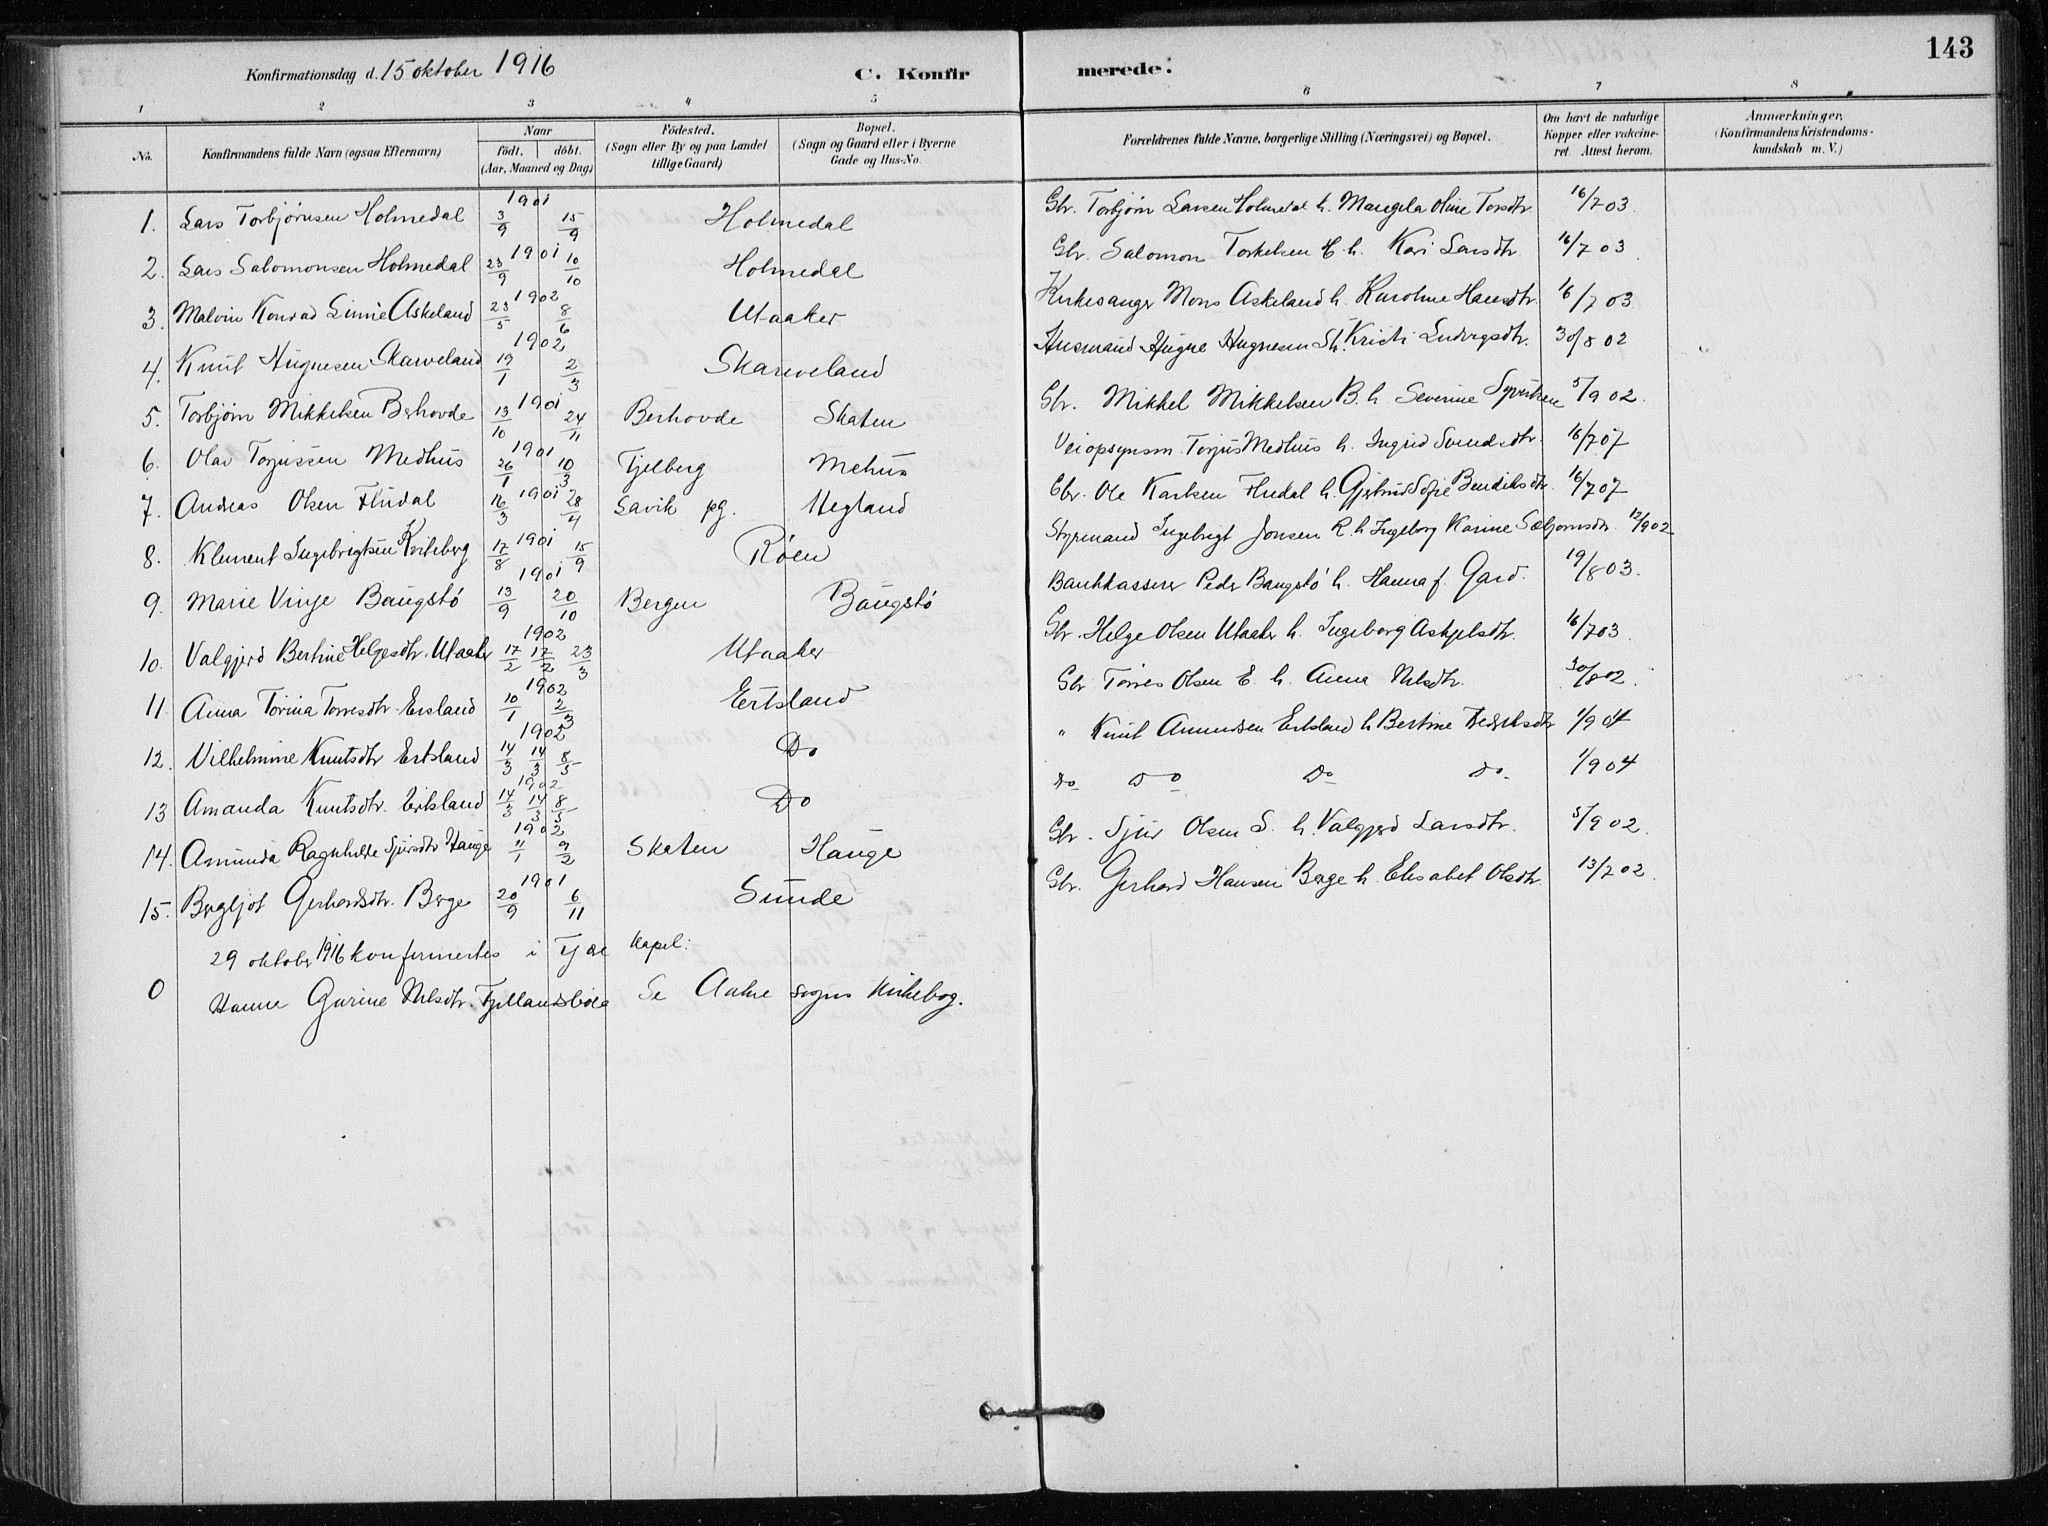 Konfirmationsdag d. 15 oktober 1916 C. Konfirmerede. 143
1 2 3 4 5 6 7 8
No. Konfirmandens fulde Navn (ogsaa Efternavn) Naar födt. döbt. (Aar, Maaned og Dag) Födested. (Sogn eller By og paa Landet tillige Gaard) Bopæl. (Sogn og Gaard eller i Byerne Gade og Hus-No. Forældrenes fulde Navne, borgerlige Stilling (Næringsvei) og Bopæl. Om havt de naturlige Kopper eller vakcineret. Attest herom. Anmærkninger. (Konfirmandens Kristendomskundskab m. V.)
1. Lars Torbjørnsen Holmedal 1901 3/9 15/9 Holmedal Gbr. Torbjørn Larsen Holmedal h. Mangela Oline Torsdtr 16/7 03
2. Lars Salomonsen Holmedal 1901 23/9 10/10 Holmedal Gbr. Salomon Torkelsen H. h. Kari Larsdtr 16/7 03
3. Malvin Konrad Linné Askeland 1902 23/5 8/6 Utaaker Kirkesanger Mons Askeland h. Karoline Hansdtr. 16/7 03
4. Knut Hugnesen Skarveland 1902 19/1 2/3 Skarveland Husmand Hugne Hugnesen Sk. Kristi Ludvigsdtr. 30/8 02
5. Torbjørn Mikkelsen Berhovde 1901 13/10 24/11 Berhovde Skaten Gbr. Mikkel Mikkelsen B. h. Severine 5/9 02.
6. Olav Torjussen Medhus 1901 26/1 10/3 Tjelberg Mehus Veiopsynsm. Torjus Medhus h. Ingrid Svendsdtr. 16/7 07
7. Andreas Olsen Fludal 1901 16/3 28/4 Savik pg. Hegland Gbr. Ole Karlsen Fludal h. Gjertrud Sofie Bendiksdtr. 16/7 07
8. Klement Ingebrigtsen Kviteberg 1901 17/8 15/9 Røen Styrmand Ingebrigt Jonsen R. h Ingeborg Karine Sæbjørnsdtr. 12/9 02
9. Marie Vinje Baugstø 1901 13/9 20/10 Bergen Baugstø Bankkasserer Peder Baugstø h. Hanna f. Gard. 19/8 03.
10. Valgjerd Bertine Helgesdtr. Utaaker 1902 17/2 17/2 23/3 Utaaker Gbr. Helge Olsen Utaaker h. Ingeborg Askjelsdtr. 16/7 03.
11. Anna Tørina Torresdtr. Ersland 1902 10/1 2/3 Ertsland Gbr Torres Olsen E. h. Anna Nilsdtr. 30/8 02.
12. Vilhelmine Knutsdtr Ertsland 1902 14/3 14/3 8/5 Do " Knut Amundsen Ertsland h Bertine 1/9 04
13 Amanda Knutsdtr. Ertsland 1902 14/3 14/3 8/5 Do Do Do Do Do. 1/9 04
14. Amunda Ragnhilde Sjursdtr Hauge 1902 11/1 9/2 Skaten Hauge Gbr. Sjur Olsen S. h. Valgjerd Larsdtr. 5/9 02.
15. Bergljot Gerhardsdtr. Berge 1901 20/9 6/11 Sunde Gbr. Gerhard Hansen Berge h. Elisabet Olsdtr. 13/7 02.
29 oktober 1916 konfirmertes i kapel:
0 Hanne Gurine Nilsdtr. Fjellandsbøe Se Aakre sogns kirkebog.